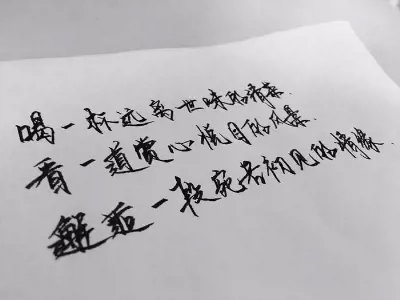 喝一杯远离世味的清茶.
看一道赏心悦目的风景.
邂逅一段宛若初见的情缘.